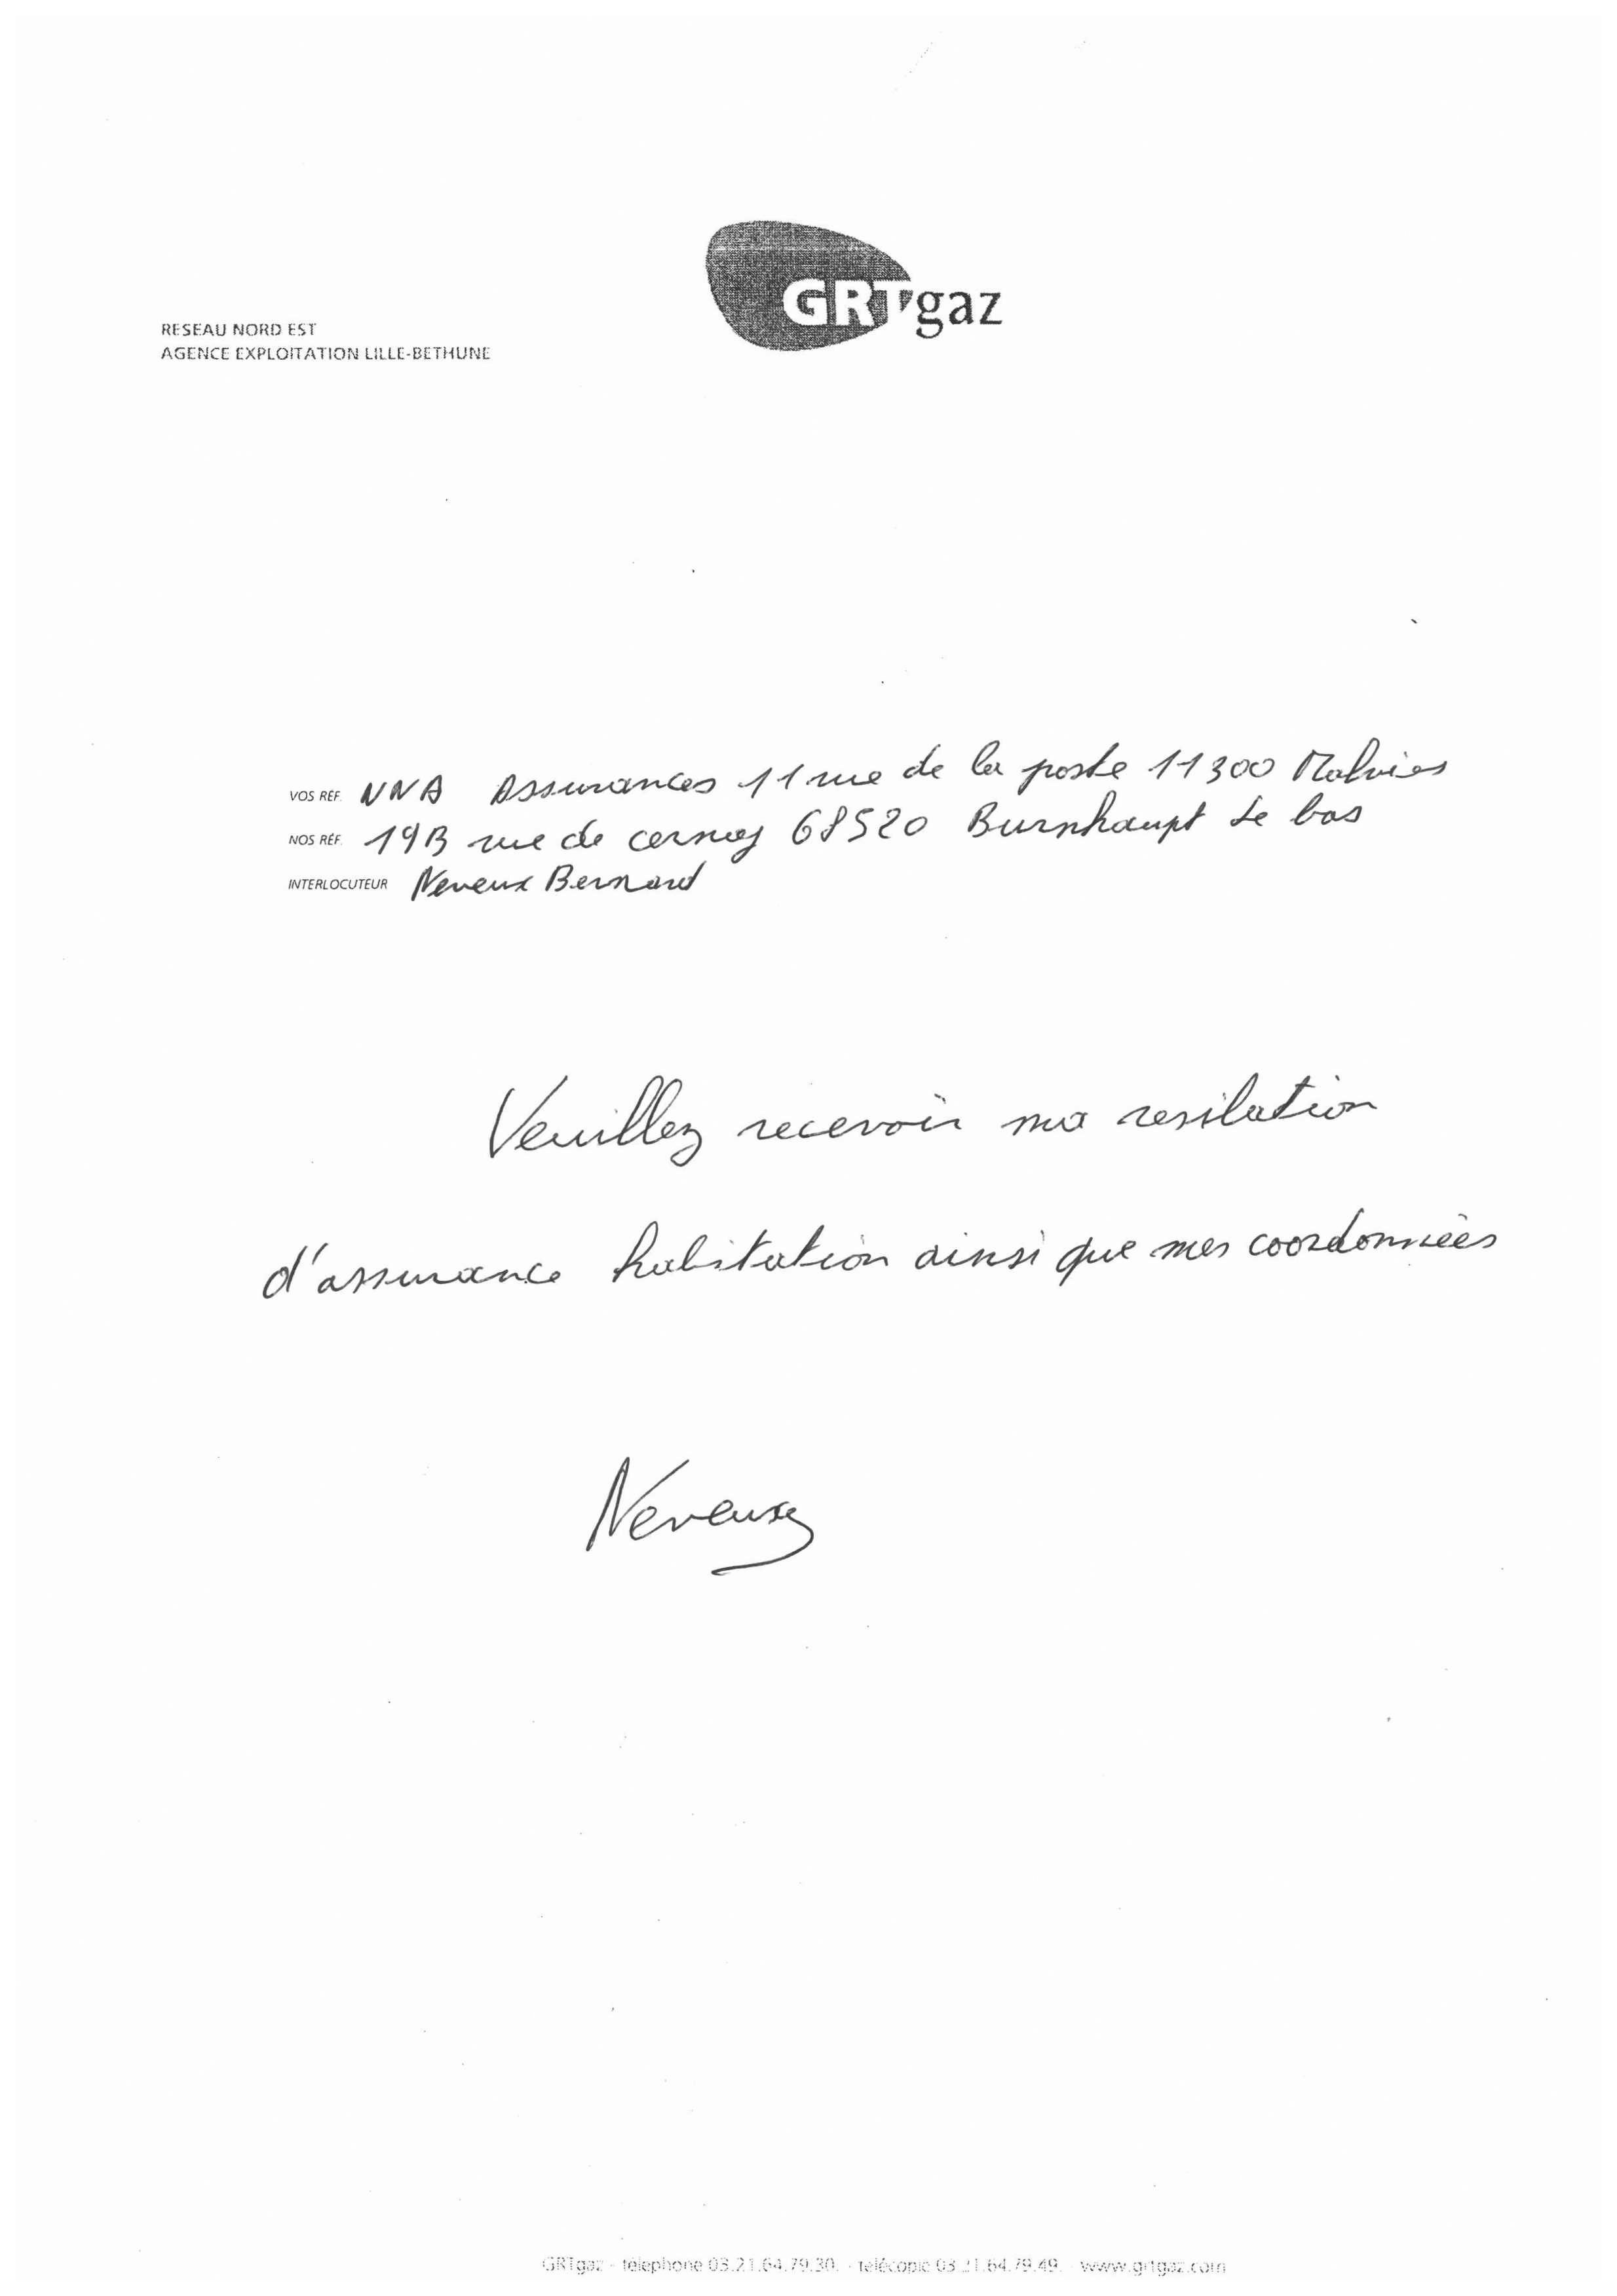 GRTgaz
RESEAU NORD EST
AGENCE EXPLOITATION LILLE-BETHUNE
VOS RÉF. NNA Assurances 11 rue de la poste 11300 Malvies
NOS RÉF. 19B rue de cernay 68520 Burnhaupt le bas
INTERLOCUTEUR Neveux Bernard
Veuillez recevoir ma resilation
d'assurance habitation ainsi que mes coordonnées
Neveux
GRTgaz - téléphone 03.21.64.79.30. - télécopie 03.21.64.79.49. - www.grtgaz.com